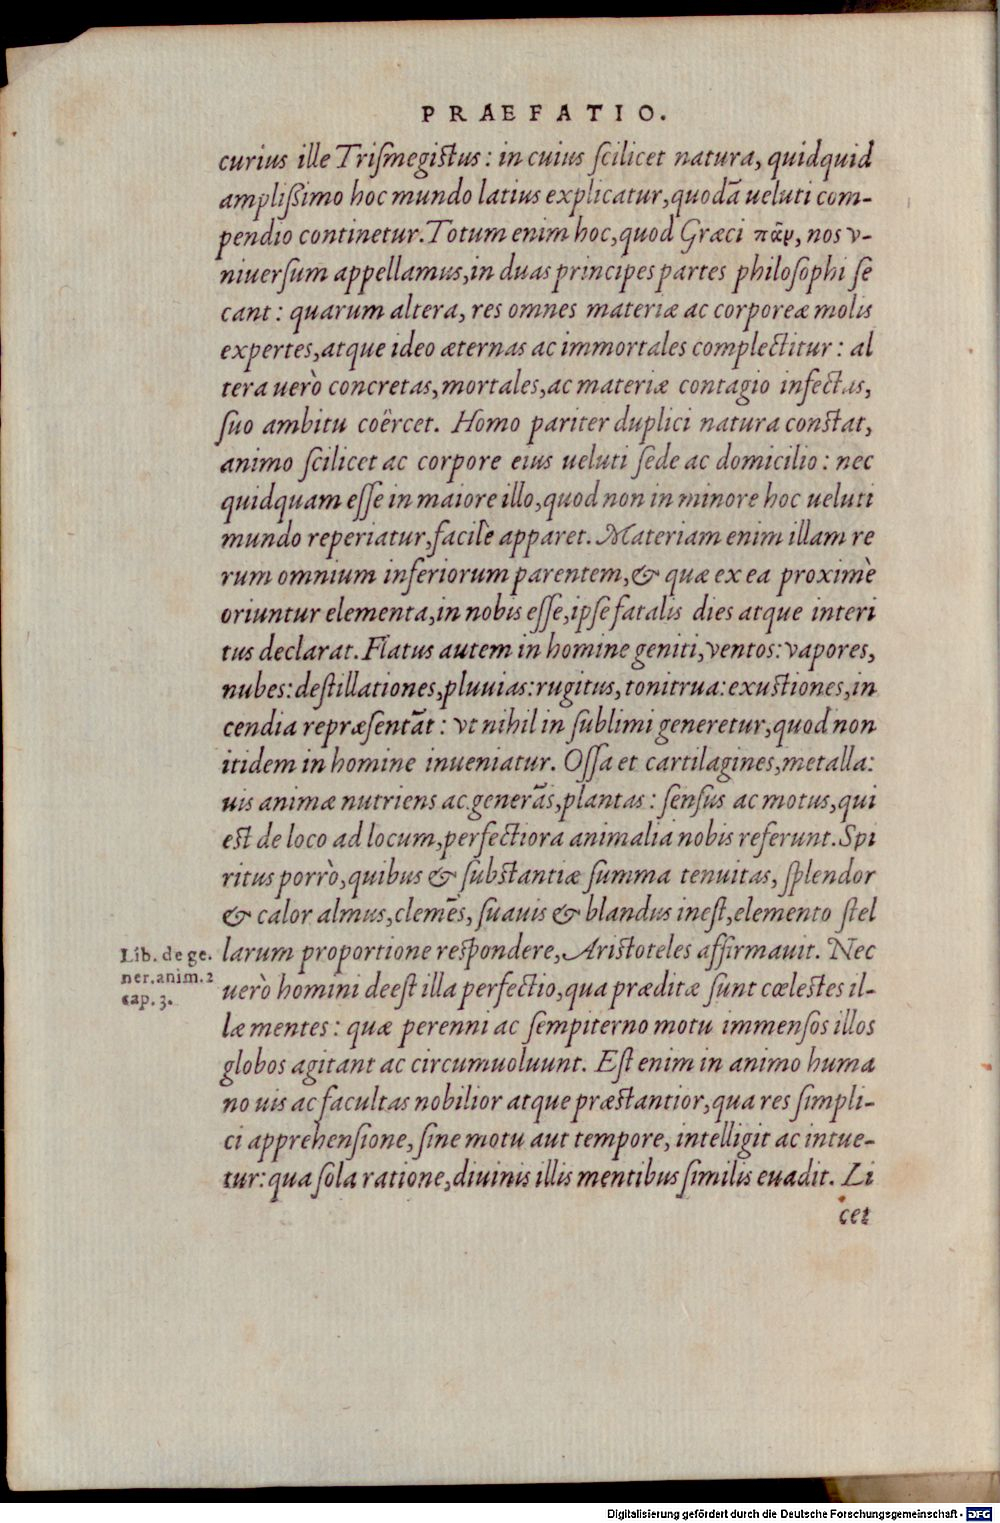 PRAEFATIO.
curius ille Triſmegiſtus: in cuius ſcilicet natura, quidquid
ampliſsimo hoc mundo latius explicatur, quodā ueluti com-
pendio continetur. Totum enim hoc, quod Græci πᾶν, nos v-
niuerſum appellamus, in duas principes partes philoſophi ſe
cant: quarum altera, res omnes materiæ ac corporeæ molis
expertes, atque ideo æternas ac immortales complectitur: al
tera uerò concretas, mortales, ac materiæ contagio infectas,
ſuo ambitu coërcet. Homo pariter duplici natura conſtat,
animo ſcilicet ac corpore eius ueluti ſede ac domicilio: nec
quidquam eſſe in maiore illo, quod non in minore hoc ueluti
mundo reperiatur, facilè apparet. Materiam enim illam re
rum omnium inferiorum parentem, & quæ ex ea proximè
oriuntur elementa, in nobis eſſe, ipſe fatalis dies atque interi
tus declarat. Flatus autem in homine geniti, ventos: vapores,
nubes: deſtillationes, pluuias: rugitus, tonitrua: exuſtiones, in
cendia repræſentāt: vt nihil in ſublimi generetur, quod non
itidem in homine inueniatur. Oſſa et cartilagines, metalla:
uis animæ nutriens ac generās, plantas: ſenſus ac motus, qui
eſt de loco ad locum, perfectiora animalia nobis referunt. Spi
ritus porrò, quibus & ſubſtantiæ ſumma tenuitas, ſplendor
& calor almus, clemēs, ſuauis & blandus ineſt, elemento ſtel
larum proportione reſpondere, Ariſtoteles affirmauit. Nec
uerò homini deeſt illa perfectio, qua præditæ ſunt cœleſtes il-
læ mentes: quæ perenni ac ſempiterno motu immenſos illos
globos agitant ac circumuoluunt. Eſt enim in animo huma
no uis ac facultas nobilior atque præſtantior, qua res ſimpli-
ci apprehenſione, ſine motu aut tempore, intelligit ac intue-
tur: qua ſola ratione, diuinis illis mentibus ſimilis euadit. Li
cet
Lib. de ge.
ner. anim. 2
cap. 3.
Digitalisierung gefördert durch die Deutsche Forschungsgemeinschaft - DFG